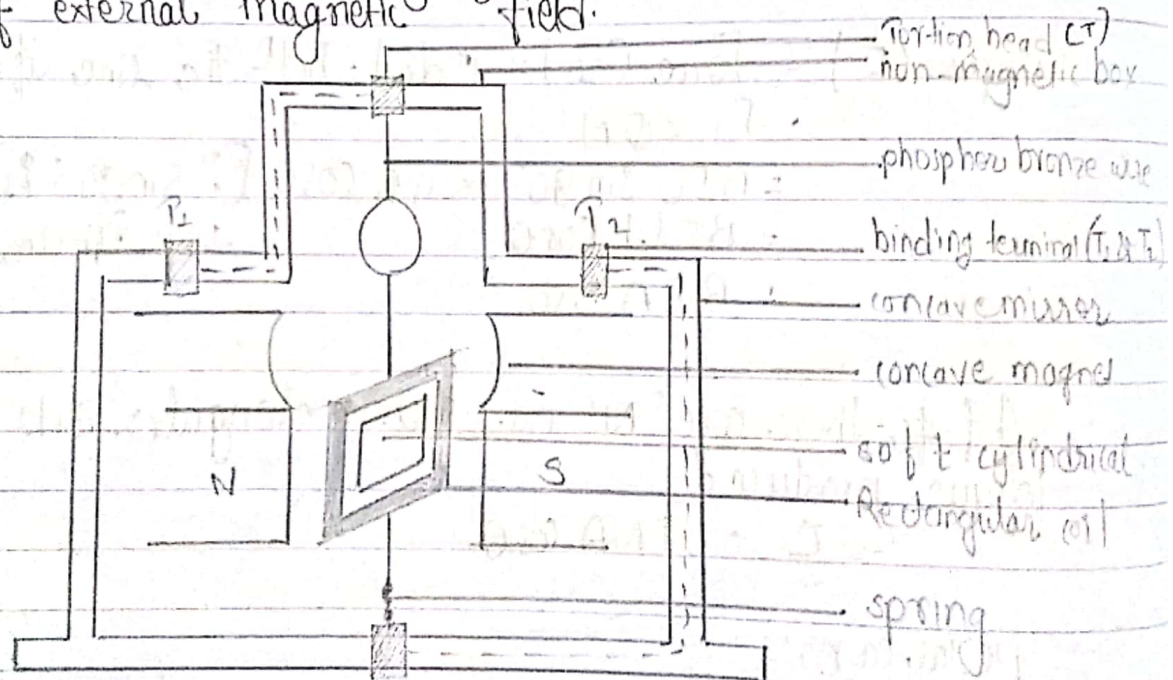 f external magnetic field.
Tortion head (T)
non-magnetic box
phosphor bronze wire
T1
T2
binding terminal (T1 & T2)
concave mirror
concave magnet
soft cylindrical
N
S
Rectangular coil
spring